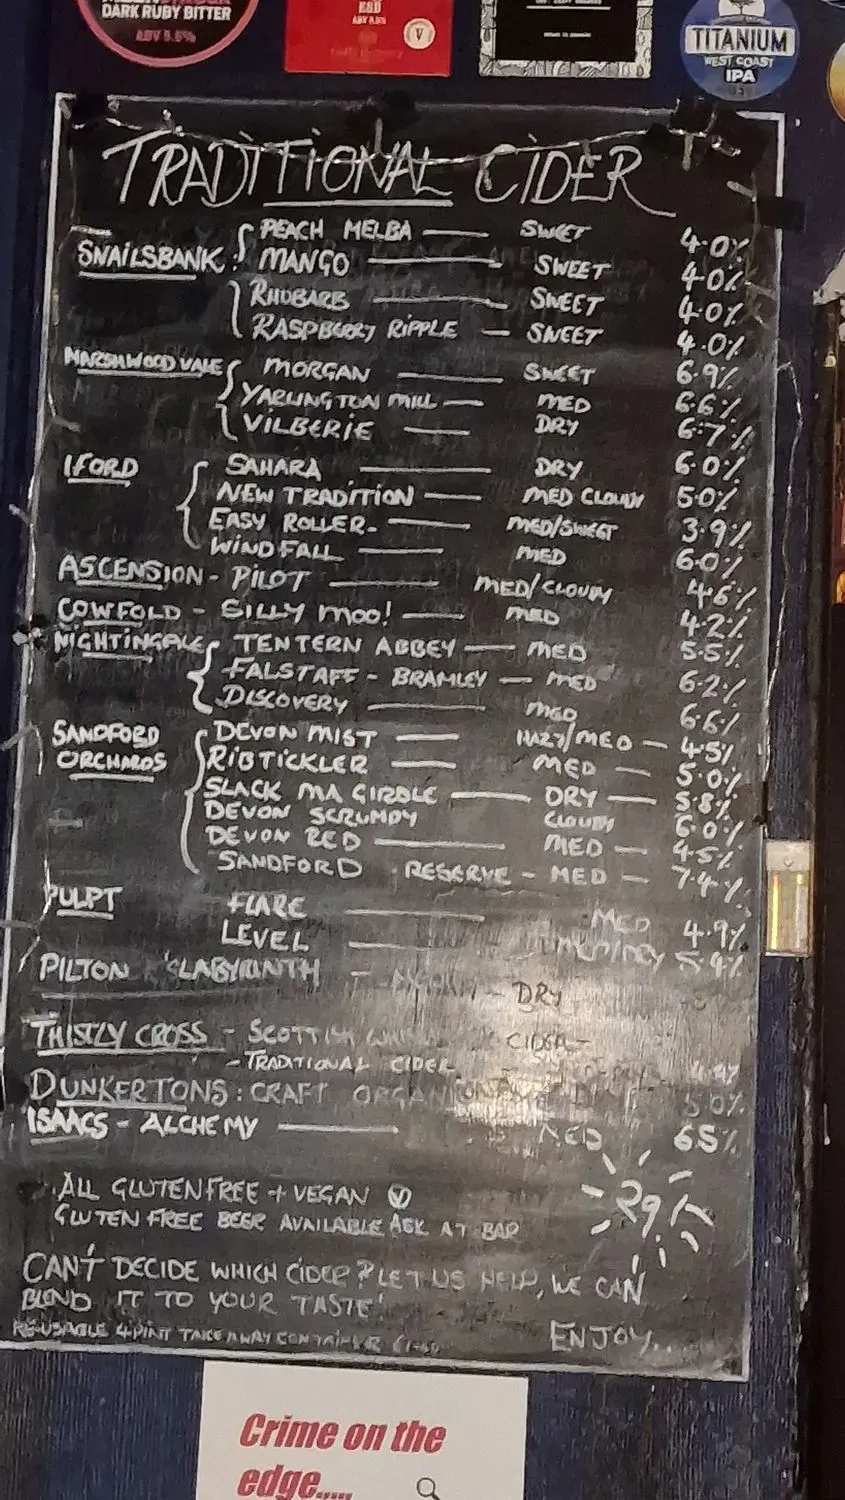 DARK RUBY BITTER
ESB
V
TITANIUM
WEST COAST
IPA
TRADITIONAL CIDER
SNAILSBANK PEACH MELBA SWEET 4.0%
MANGO SWEET 4.0%
RHUBARB SWEET 4.0%
RASPBERRY RIPPLE SWEET 4.0%
MARSHWOOD VALE MORGAN SWEET 6.9%
YARLINGTON MILL MED 6.6%
VILBERIE DRY 6.7%
IFORD SAHARA DRY 6.0%
NEW TRADITION MED CLOUDY 5.0%
EASY ROLLER MED/SWEET 3.9%
WINDFALL MED 6.0%
ASCENSION - PILOT MED/CLOUDY 4.6%
COWFOLD - SILLY MOO! MED 4.2%
NIGHTINGALE TENTERN ABBEY MED 5.5%
FALSTAFF - BRAMLEY MED 6.2%
DISCOVERY MED 6.6%
SANDFORD ORCHARDS DEVON MIST HAZY/MED 4.5%
RIBTICKLER MED 5.0%
SLACK MA GIRDLE DRY 5.8%
DEVON SCRUMPY CLOUDY 6.0%
DEVON RED MED 4.5%
SANDFORD RESERVE - MED 7.4%
PULPT FLARE MED 4.9%
LEVEL MED/DRY 5.4%
PILTON LABYRINTH DRY
THISTLY CROSS - SCOTTISH CIDER
- TRADITIONAL CIDER
DUNKERTONS: CRAFT ORGANIC 5.0%
ISAACS - ALCHEMY MED 65%
ALL GLUTEN FREE + VEGAN V
GLUTEN FREE BEER AVAILABLE ASK AT BAR
CAN'T DECIDE WHICH CIDER? LET US HELP, WE CAN
BLEND IT TO YOUR TASTE!
RE-USABLE 4 PINT TAKEAWAY CONTAINER
ENJOY...
Crime on the
edge.....